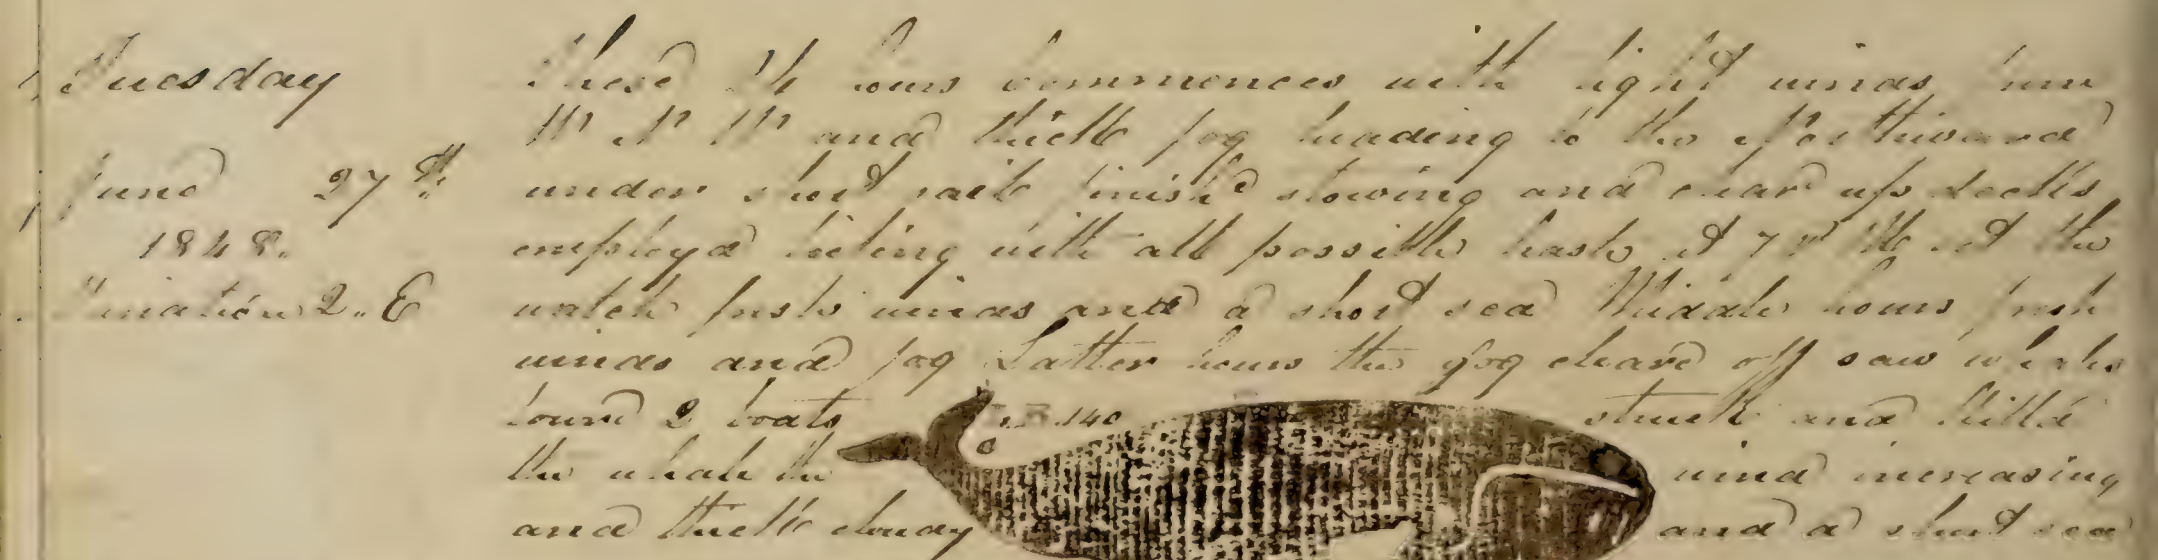 Tuesday
June 27th
1848.
Variation 2.. E
These 24 hours commences with light winds from
W N W and thick fog heading to the Northward
under short sail finishd stowing and cleard up decks
employd boiling with all possible haste at 7 P M set the
watch fresh winds and a short sea Middle hours fresh
winds and fog Latter hours the fog cleard off saw whales
lowrd 2 boats 140 struck and killd
the whale the wind increasing
and thick cloudy and a short sea